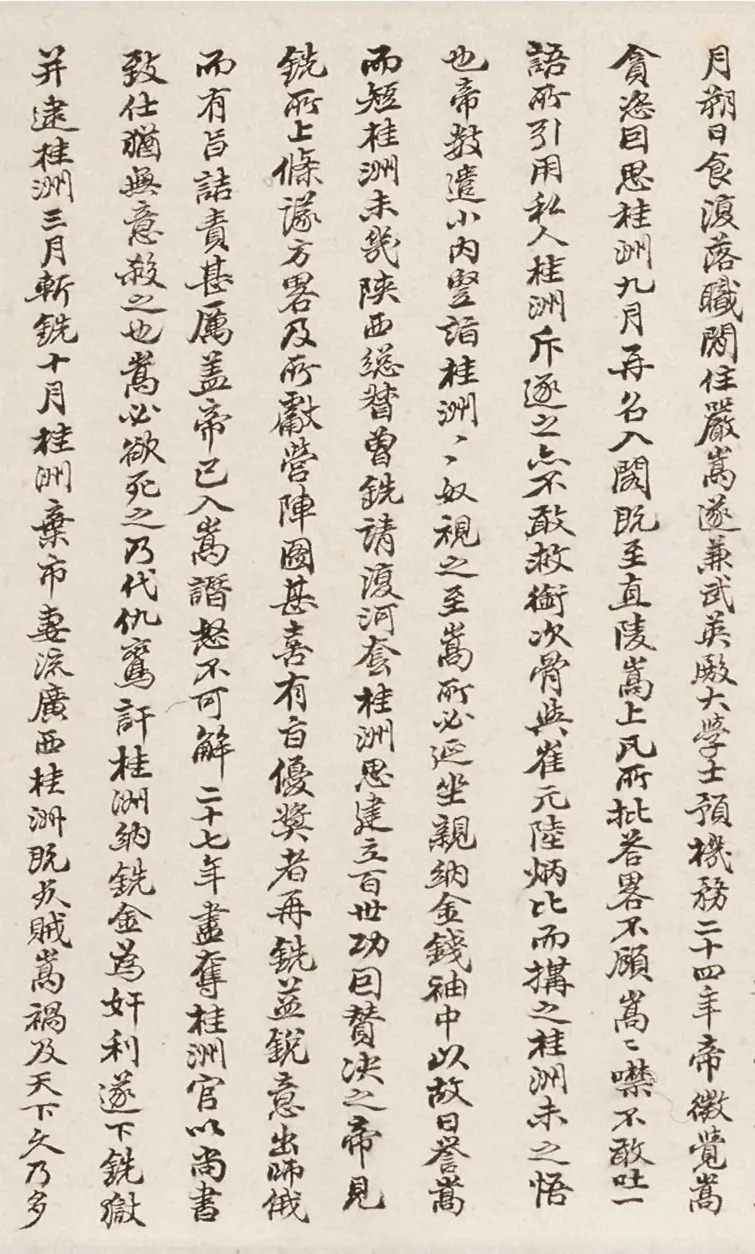 月朔日食復落職閒住嚴嵩遂兼武英殿大學士預機務二十四年帝微覺嵩
貪恣回思桂洲九月再名入閣既至直陵嵩上凡所批荅畧不顧嵩〻噤不敢吐一
語所引用私人桂洲斥逐之亦不敢救銜次骨與崔元陸炳比而搆之桂洲未之悟
也帝數遣小內豎詣桂洲〻奴視之至嵩所必延坐親納金錢袖中以故日譽嵩
而短桂洲未幾陝西總督曾銑請復河套桂洲思建立百世功因贊决之帝見
銑所上條議方畧及所獻營陣圖甚喜有旨優獎者再銑益銳意出師俄
而有旨詰責甚厲盖帝已入嵩譖怒不可解二十七年盡奪桂洲官以尚書
致仕猶無意殺之也嵩必欲死之乃代仇鸞訐桂洲納銑金為奸利遂下銑獄
并逮桂洲三月斬銑十月桂洲棄市妻流廣西桂洲既死賊嵩禍及天下久乃多